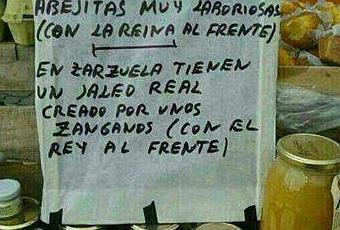 ABEJITAS MUY LABORIOSAS
(CON LA REINA AL FRENTE)
EN ZARZUELA TIENEN
UN JALEO REAL
CREADO POR UNOS
ZANGANOS (CON EL
REY AL FRENTE)